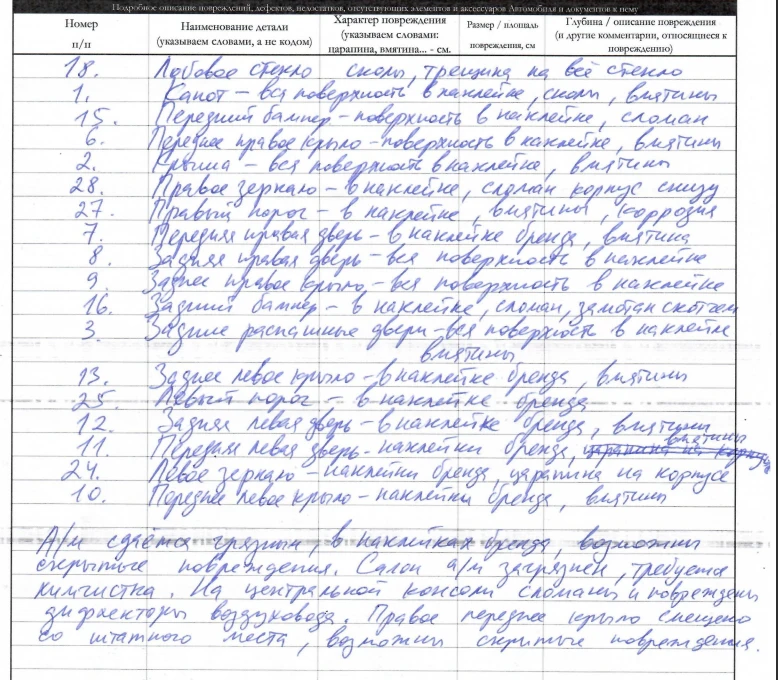 Подробное описание повреждений, дефектов, недостатков, отсутствующих элементов и аксессуаров Автомобиля и документов к нему
Номер п/п Наименование детали (указываем словами, а не кодом) Характер повреждения (указываем словами: царапина, вмятина... - см. Размер / площадь повреждения, см Глубина / описание повреждения (и другие комментарии, относящиеся к повреждению)
18. Лобовое стекло сколы, трещина на всё стекло
1. Капот – вся поверхность в наклейке, сколы, вмятины
15. Передний бампер – поверхность в наклейке, сломан
6. Переднее правое крыло – поверхность в наклейке, вмятины
2. Крыша – вся поверхность в наклейке, вмятины
28. Правое зеркало – в наклейке, сломан корпус снизу
27. Правый порог – в наклейке, вмятины, коррозия
7. Передняя правая дверь – в наклейке бренда, вмятина
8. Задняя правая дверь – вся поверхность в наклейке
9. Заднее правое крыло – вся поверхность в наклейке
16. Задний бампер – в наклейке, сломан, замотан скотчем
3. Задние распашные двери – вся поверхность в наклейке
вмятины
13. Заднее левое крыло – в наклейке бренда, вмятины
25. Левый порог – в наклейке бренда
12. Задняя левая дверь – в наклейке бренда, вмятины
11. Передняя левая дверь – наклейки бренда, царапина на корпусе вмятины
24. Левое зеркало – наклейки бренда, царапина на корпусе
10. Переднее левое крыло – наклейки бренда, вмятины
А/м сдается грязным, в наклейках бренда, возможны
скрытые повреждения. Салон а/м загрязнен, требуется
химчистка. На центральной консоли сломаны и повреждены
дифлекторы воздуховода. Правое переднее крыло смещено
со штатного места, возможны скрытые повреждения.